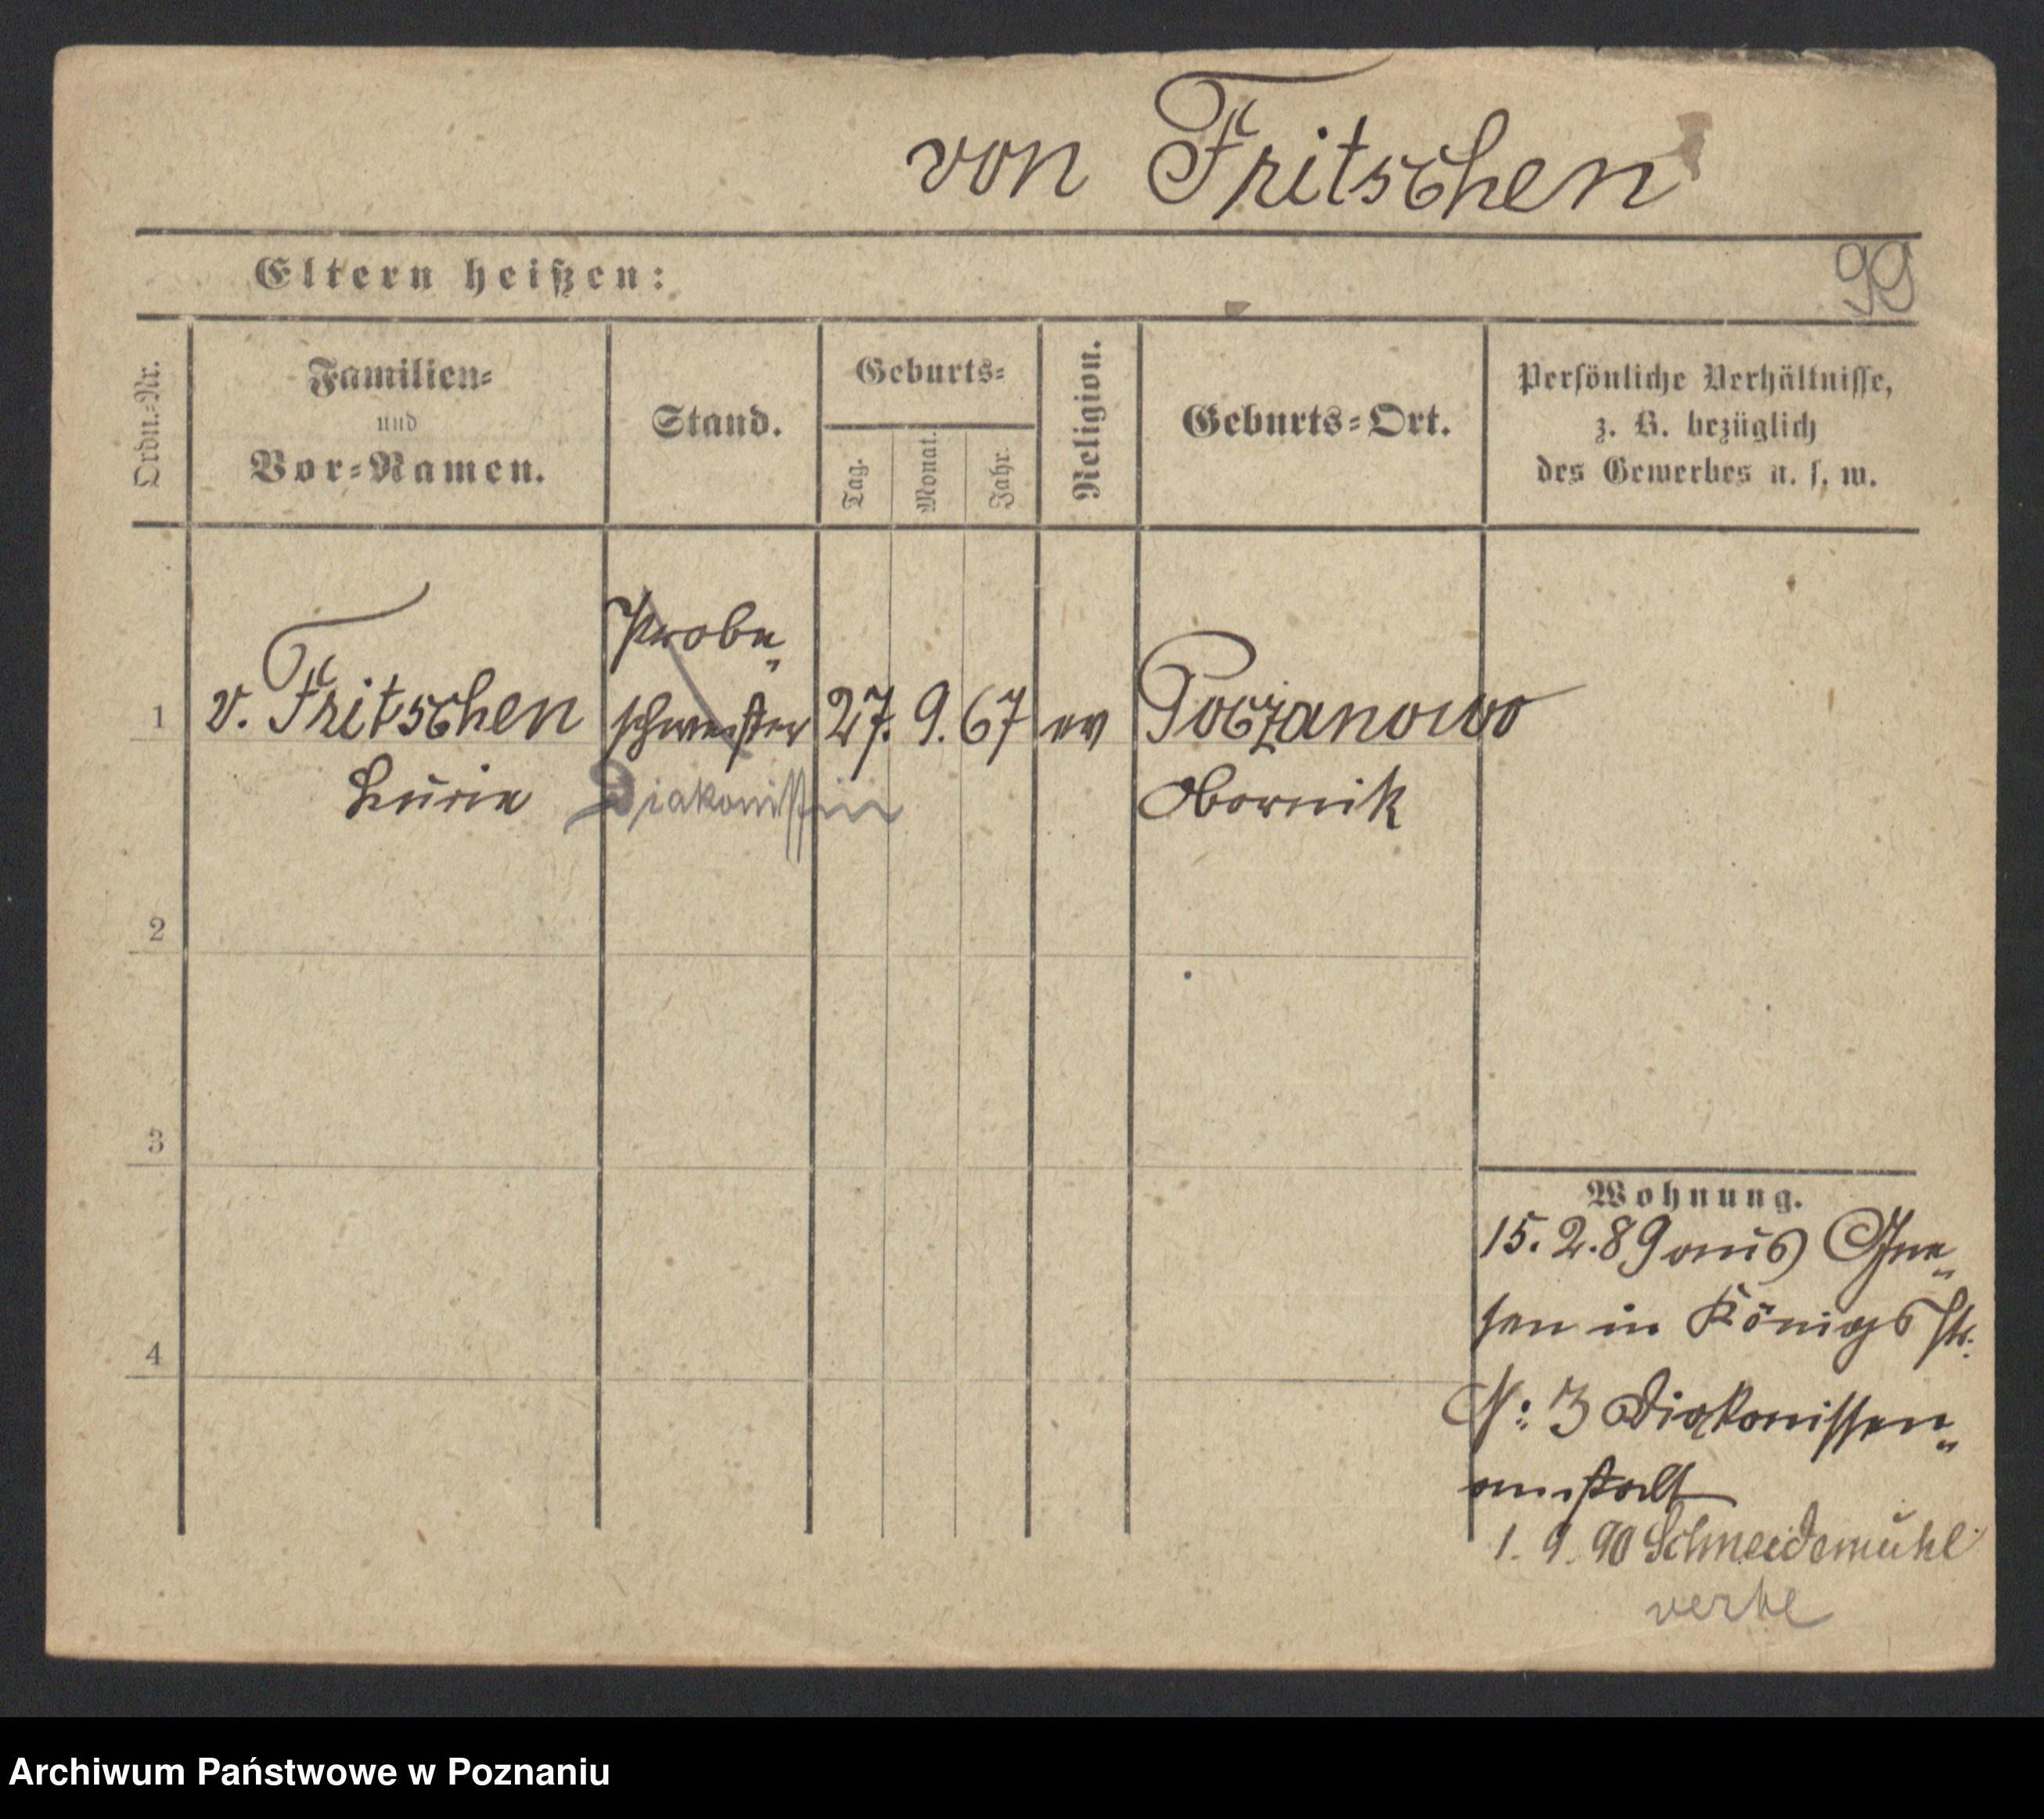 von Fritschen
Eltern heißen:
99
Ordn.=Nr.
Familien=
und
Vor=Namen.
Stand.
Geburts=
Tag.
Monat.
Jahr.
Religion.
Geburts=Ort.
Persönliche Verhältnisse,
z. B. bezüglich
des Gewerbes u. s. w.
Probe„
1 v. Fritschen schwester 27. 9. 67 ev Poczanowo
Diakonissin Obornik
2
3
4
Wohnung.
15. 2. 89 aus Gne„
sen in Königsstr.
N: 3 Diakonissen„
anstalt
1. 9. 90 Schneidemühl
Archiwum Państwowe w Poznaniu